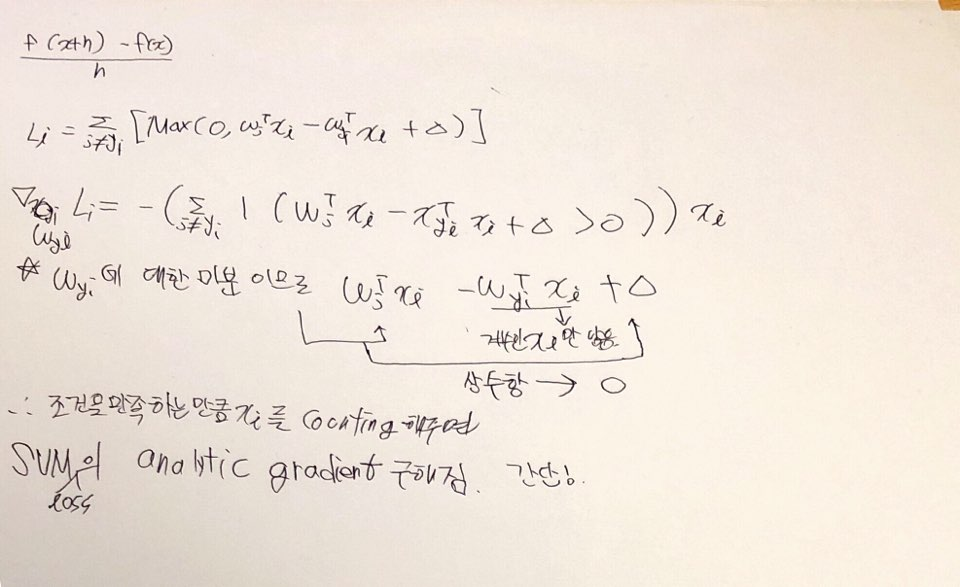 f(x+h) - f(x)
h
Li = Σ j≠yi [Max(0, wjᵀxi - wyᵀxi + Δ)]
∇ wyi Li = -(Σ j≠yi 1 (wjᵀxi - xyiᵀxi + Δ > 0)) xi
☆ wyi에 대한 미분 이므로 wjᵀxi - wyiᵀxi + Δ
계수인 xi만 남음
상수항 → 0
∴ 조건을 만족하는 만큼 xi를 counting 해주면
SVM의 analytic gradient 구해짐. 간단!
loss